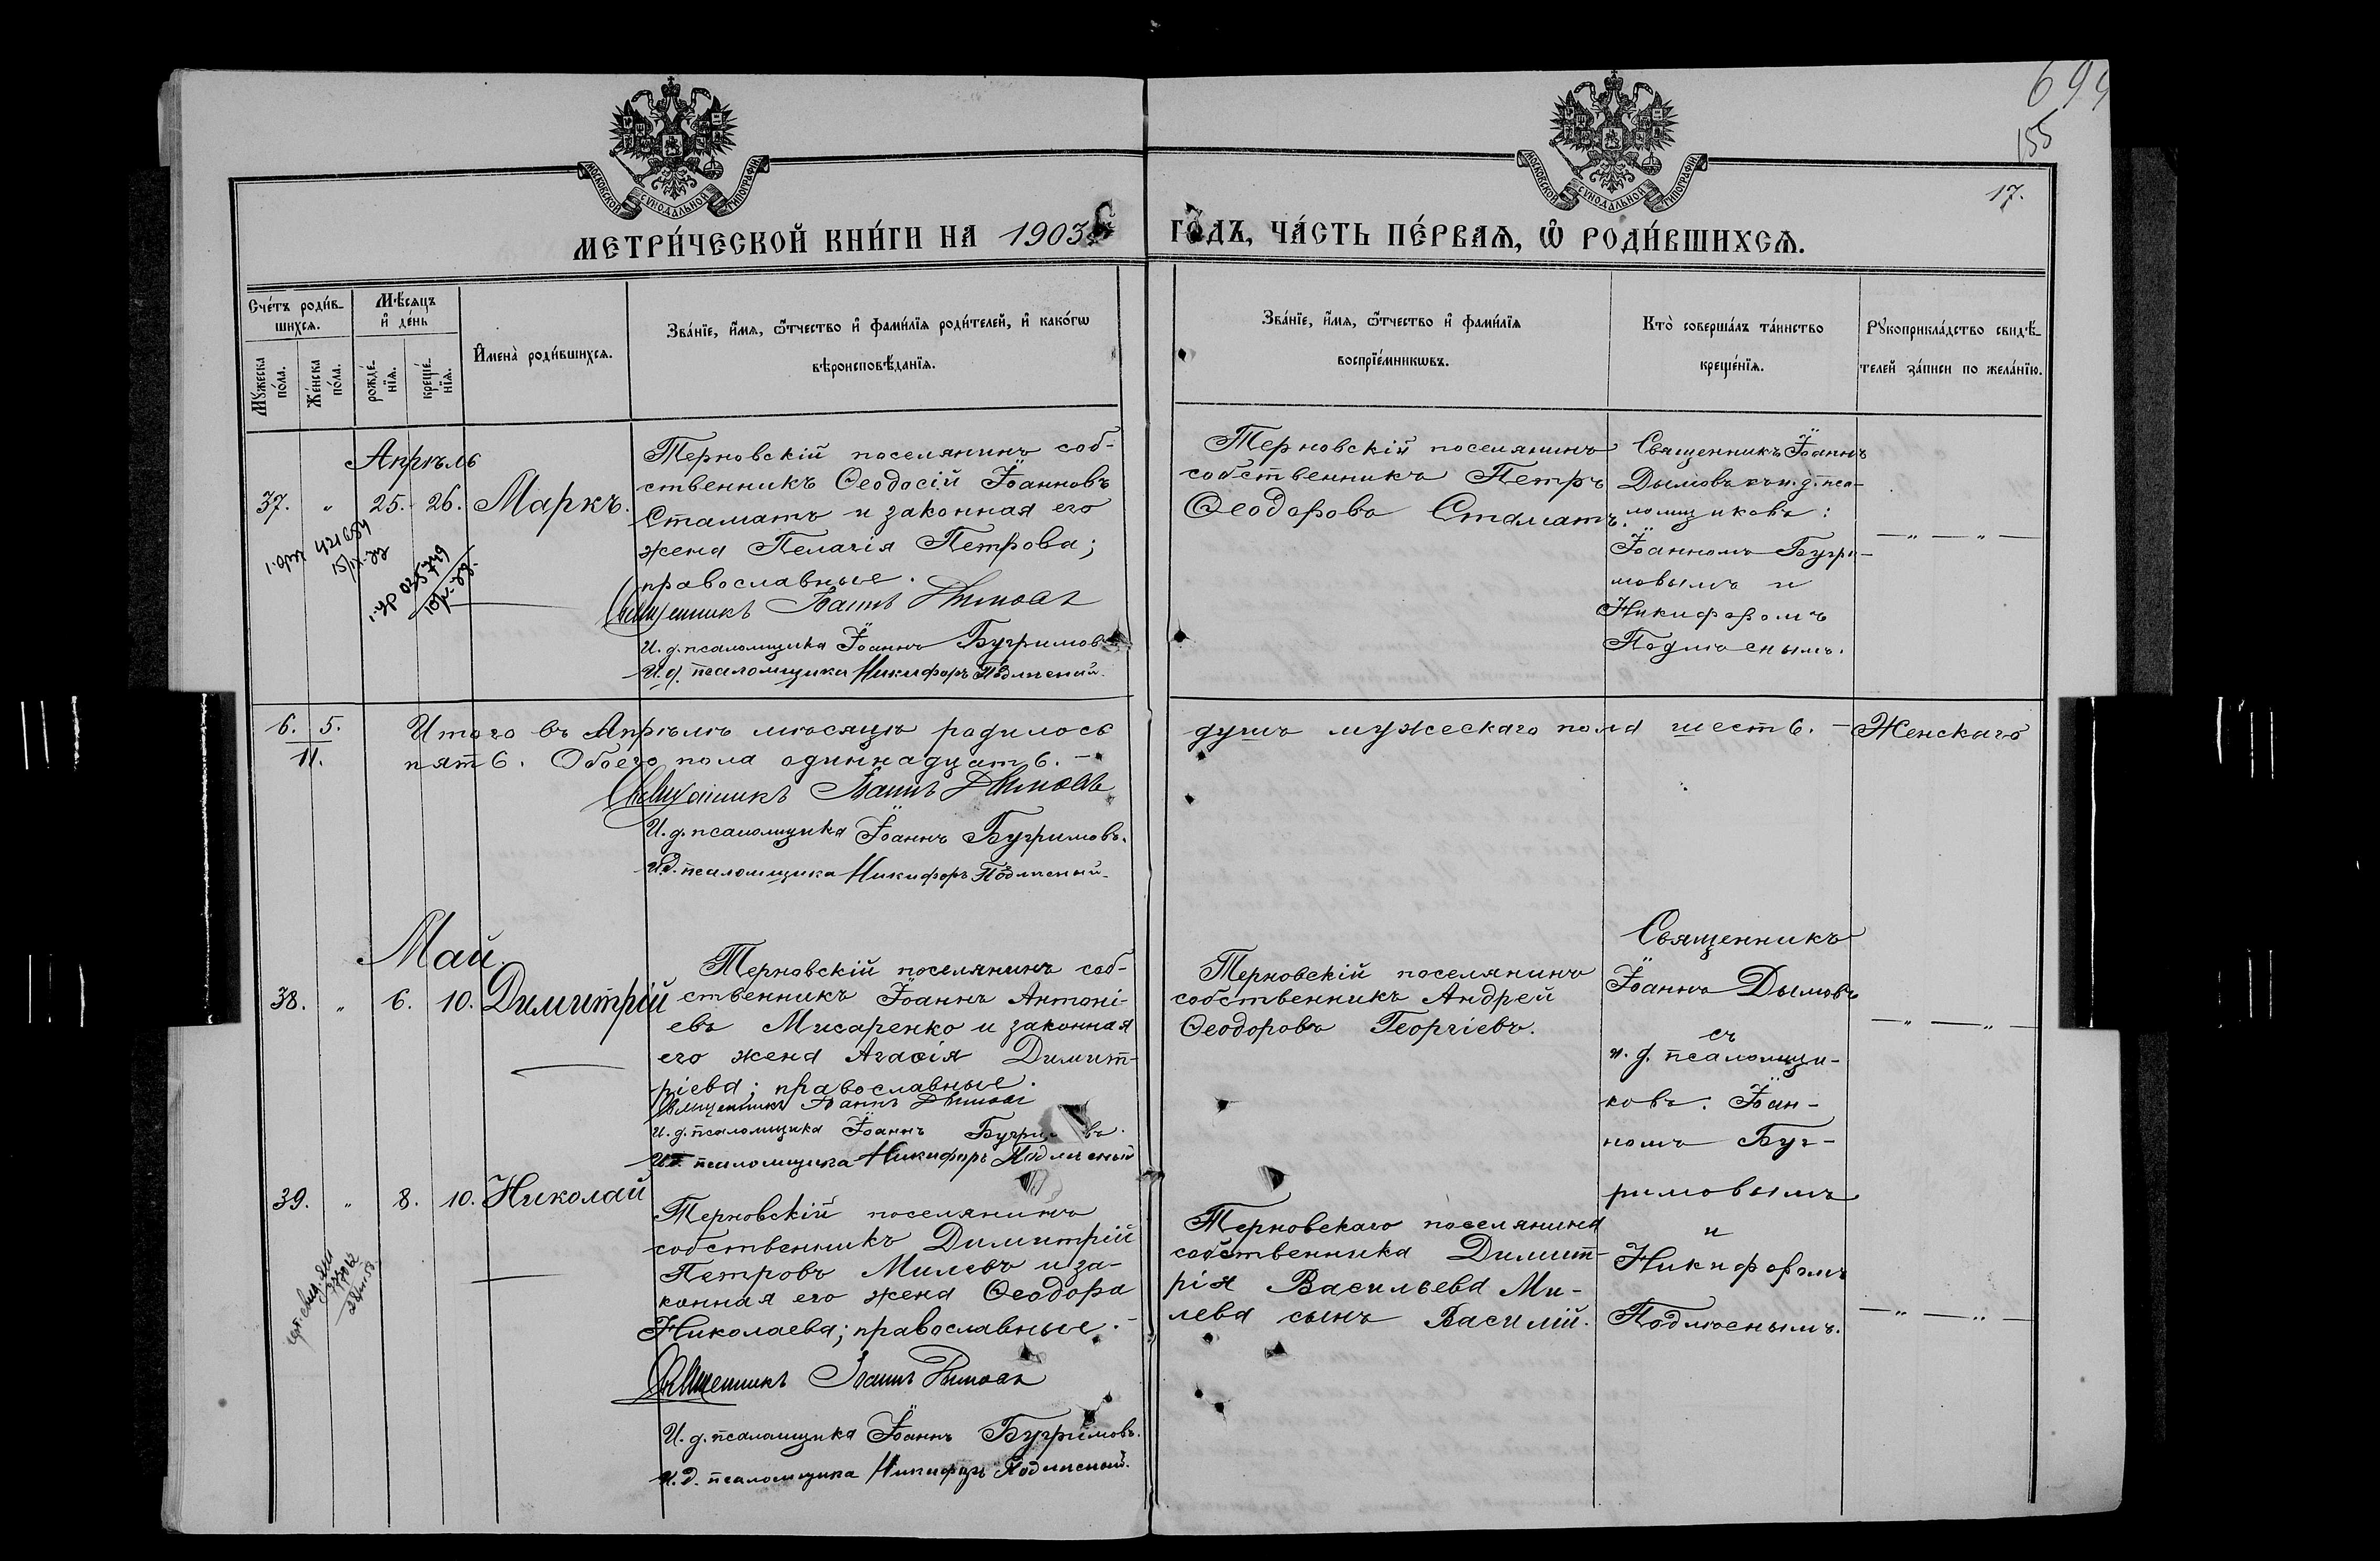 694
155
17.
МОСКОВСКОЙ СУНОДАЛЬНОЙ ТИПОГРАФІИ
МОСКОВСКОЙ СУНОДАЛЬНОЙ ТИПОГРАФІИ
МЕТРИ́ЧЕСКОЙ КНИ́ГИ НА 1903й ГО́ДЪ, ЧА́СТЬ ПЕ́РВАѦ, Ѡ҆ РОДИ́ВШИХСѦ.
Сче́тъ роди́в-
шихсѧ.
Мꙋжеска
по́ла.
Же́нска
по́ла.
Мѣ́сѧцъ
и҆ де́нь
рожде́-
нїѧ.
креще́-
нїѧ.
И҆мена̀ роди́вшихсѧ.
Зва́нїе, и҆́мѧ, ѻ҆́тчество и҆ фами́лїѧ роди́телей, и҆ како́гѡ
вѣроисповѣ́данїѧ.
Зва́нїе, и҆́мѧ, ѻ҆́тчество и҆ фами́лїѧ
воспрїе́мникѡвъ.
Кто̀ соверша́лъ та́инство
креще́нїѧ.
Рꙋкоприкла́дство свидѣ́-
телей за́писи по жела́нїю.
Апрѣль
37. " 25. 26. Маркъ.
Терновскій поселянинъ соб-
ственникъ Ѳеодосій Іоанновъ
Стаматъ и законная его
жена Пелагія Петрова;
православные.
Священникъ Іоаннъ Дымовъ
И. д. псаломщика Іоаннъ Бугримовъ
И. д. псаломщика Никифоръ Подлѣсный.
Терновскій поселянинъ
собственникъ Петръ
Ѳеодоровъ Стаматъ.
Священникъ Іоаннъ
Дымовъ съ и. д. пса-
ломщиковъ:
Іоанномъ Бугри-
мовымъ и
Никифоромъ
Подлѣснымъ.
— " — " —
421684
15/IX-22
035749
6. 5.
11.
Итого въ Апрѣлѣ мѣсяцѣ родилось душъ мужескаго пола шесть. — Женскаго
пять. Обоего пола одиннадцать. —
Священникъ Іоаннъ Дымовъ
И. д. псаломщика Іоаннъ Бугримовъ.
И. д. псаломщика Никифоръ Подлѣсный.
Май.
38. " 6. 10. Димитрій
Терновскій поселянинъ соб-
ственникъ Іоаннъ Антоні-
евъ Мисаренко и законная
его жена Агаѳія Димит-
ріева; православные.
Священникъ Іоаннъ Дымовъ
И. д. псаломщика Іоаннъ Бугримовъ.
И. д. псаломщика Никифоръ Подлѣсный
Терновскій поселянинъ
собственникъ Андрей
Ѳеодоровъ Георгіевъ.
Священникъ
Іоаннъ Дымовъ
съ
и. д. псаломщи-
ковъ: Іоан-
номъ Буг-
римовымъ
и
Никифоромъ
Подлѣснымъ.
— " — " —
39. " 8. 10. Николай
Терновскій поселянинъ
собственникъ Димитрій
Петровъ Милевъ и за-
конная его жена Ѳеодора
Николаева; православные. —
Священникъ Іоаннъ Дымовъ
И. д. псаломщика Іоаннъ Бугримовъ.
И. д. псаломщика Никифоръ Подлѣсный.
Терновскаго поселянина
собственника Димит-
рія Васильева Ми-
лева сынъ Василій.
— " — " —